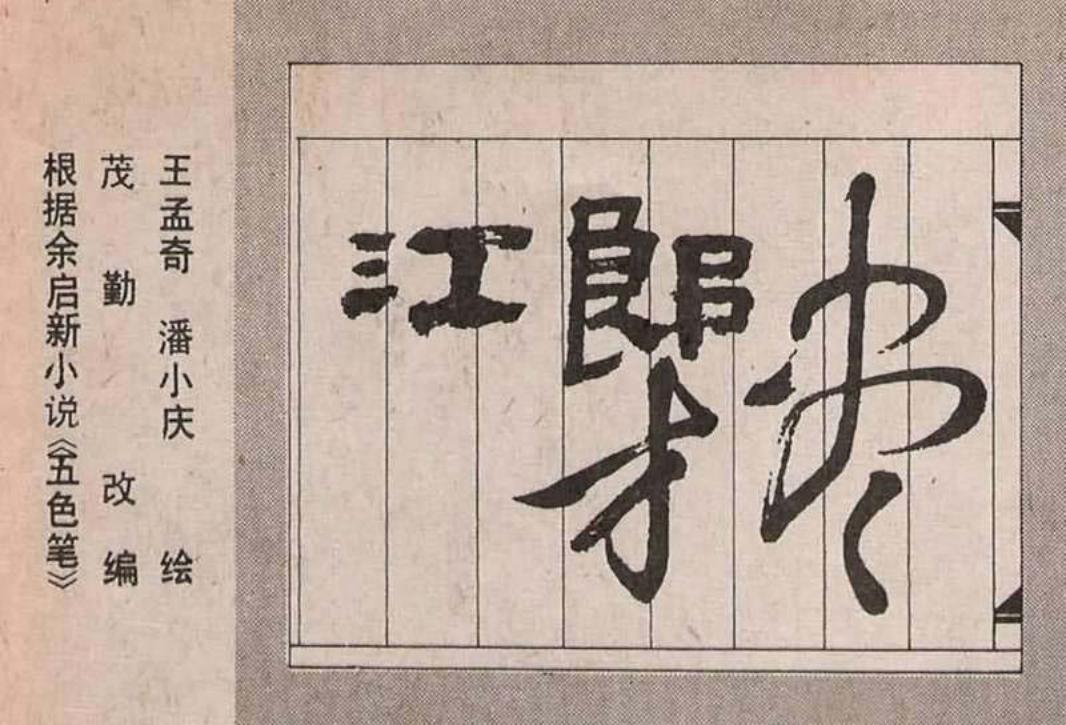 江郎才尽
王孟奇 潘小庆 绘
茂勤 改编
根据余启新小说《五色笔》